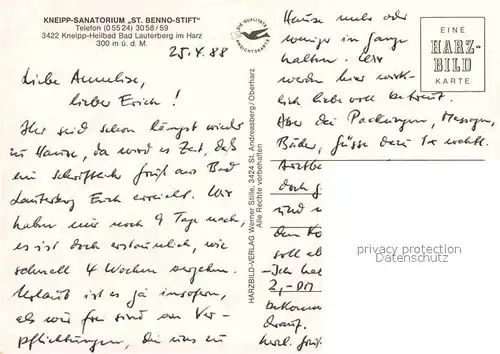 KNEIPP-SANATORIUM „ST. BENNO-STIFT"
Telefon (0 55 24) 30 58 / 59
3422 Kneipp-Heilbad Bad Lauterberg im Harz
300 m ü. d. M.
25.4.88
Liebe Annelise,
lieber Erich!
Ihr seid schon längst wieder
zu Hause, da wird es Zeit, daß
ein schriftlicher Gruß aus Bad
Lauterberg Euch erreicht. Wir
haben nur noch 9 Tage nach,
es ist doch erstaunlich, wie
schnell 4 Wochen vergehen.
Urlaub ist es ja insofern,
als wir frei sind von Ver-
pflichtungen, die uns zu
DIE QUALITÄTS
ANSICHTSKARTE
HARZBILD-VERLAG Werner Stille, 3424 St. Andreasberg / Oberharz
Alle Rechte vorbehalten
Hause mehr oder
weniger in Gange
halten. Wir
werden hier wirk-
lich liebevoll betreut.
Aber die Packungen, Massagen,
Bäder, Güsse dazu
Arztbe
doch g
sind
dem
soll
-Ich hab
2,-DM
bekomm
drauf.
EINE
HARZ-
BILD
KARTE
privacy protection
AnsichtsKartenhandel.de